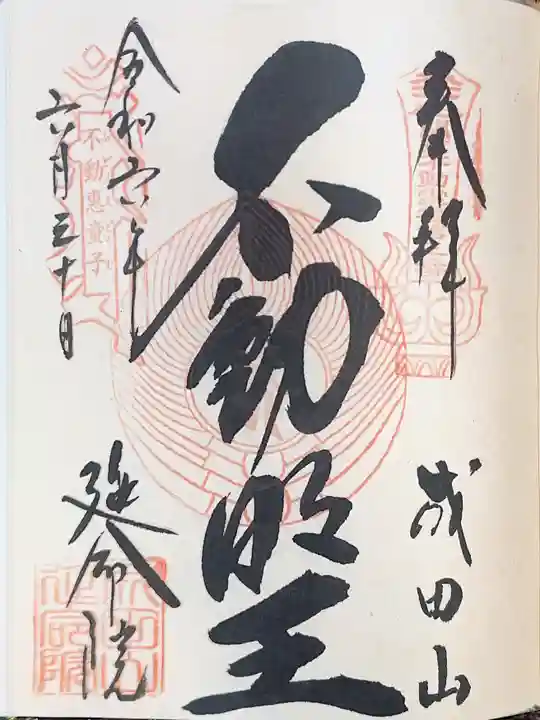 奉拝
成田山
不動明王
令和六年
六月三十日
延命院
不動恵童子